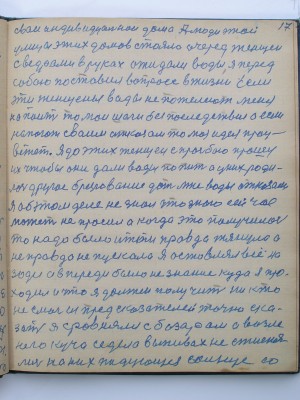 17
свои индивидуальной дома А людь этой
улицы этих домов стояло очередь женщен
с ведрами в руках ожидали воды я перед
собою поставил вопрос в жизни Если
эти женщены воды не пожелают меня
напоит то мои шаги без последствия а если
напоют своим отказом то моя идея проц
ветёт. Я до этих женщен с прозбою прошу
их чтобы они дали воды попит а у них роди
лось другое брезование дат мне воды отказали
Я об этом деле не знал это одного сейчас
может не просил а когда это получилось
то надо было итти правда тянула а
не правда не пускала Я оставлял всё на
зади а впереди было не знание куда я про
ходил и что я должен получит ни кто
не смог из предсказателей точно ска
зат Я сровнялся с базаром а возле
него куча сидела выпивах не стиснял
ись на них пидующее солнце со